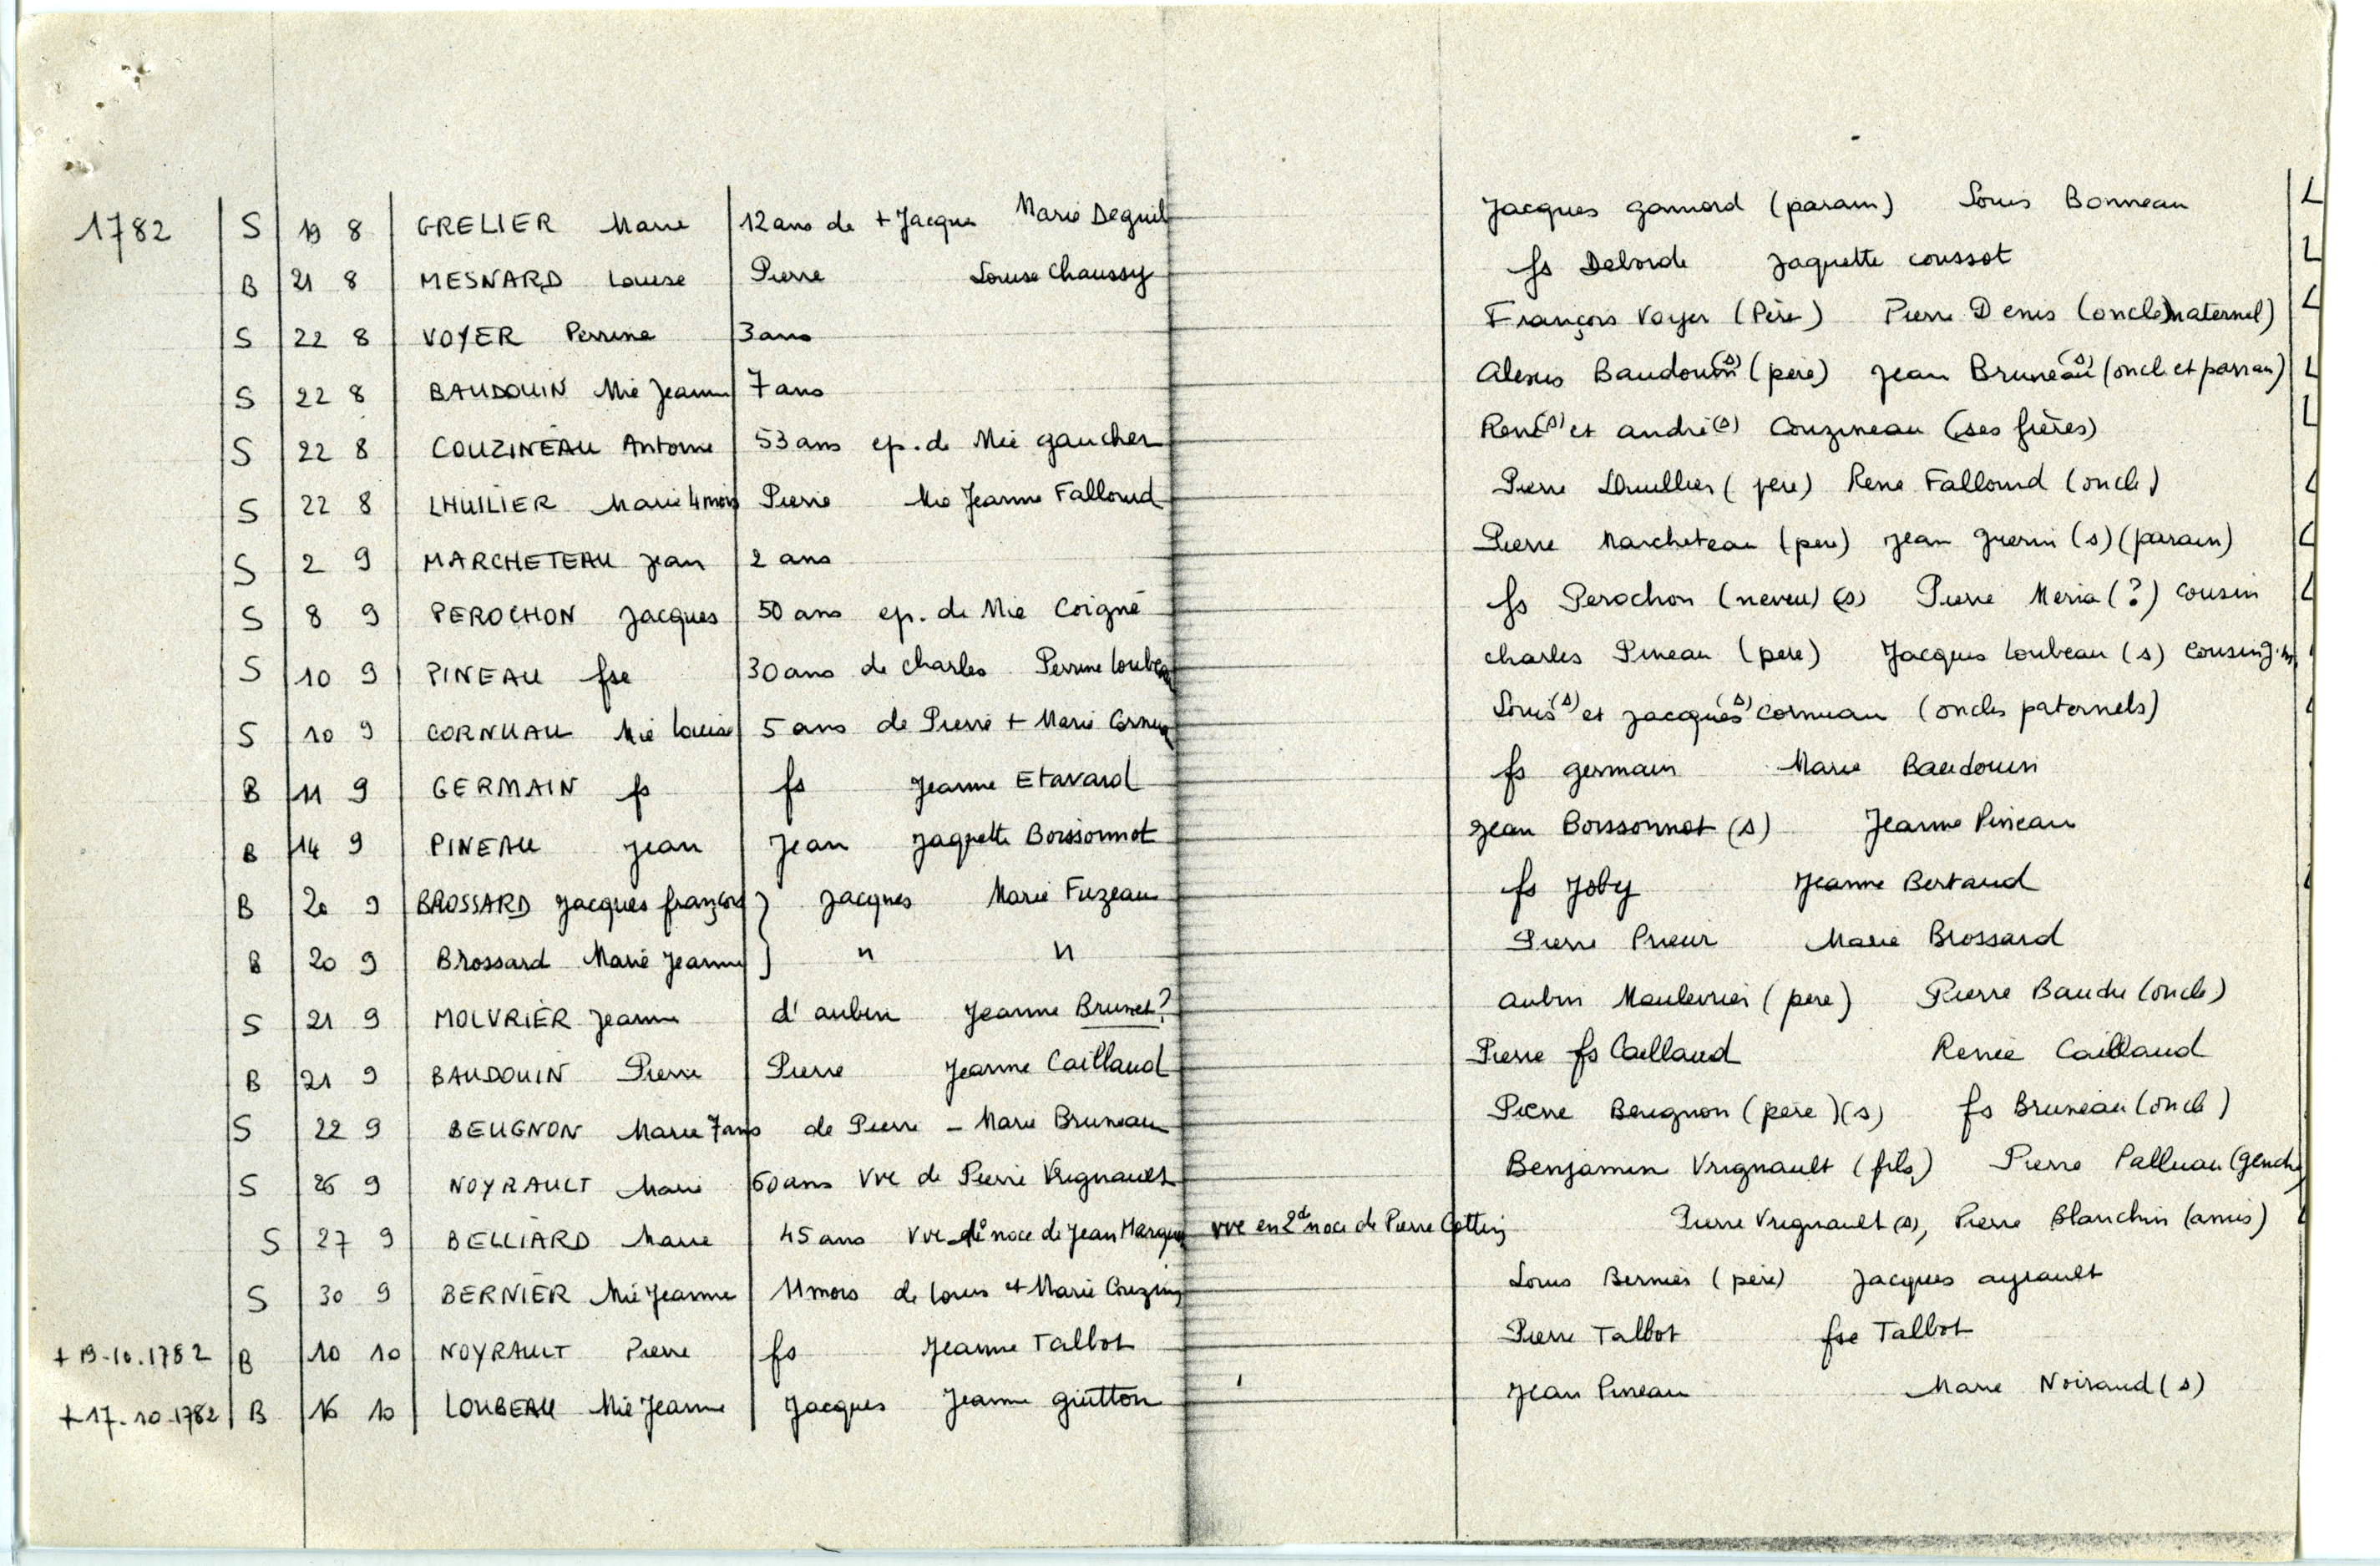 1782 S 19 8 GRELIER Marie 12 ans de + Jacques Marie Deguil Jacques gamard (parain) Louis Bonneau L
B 21 8 MESNARD Louise Pierre Louise Chaussy fs Deborde Jaquette coussot L
S 22 8 VOYER Perrine 3 ans François Voyer (Père) Pierre Denis (oncle maternel) L
S 22 8 BAUDOUIN Mie Jeanne 7 ans Alexis Baudouin (s) (père) Jean Bruneau (s) (oncle et parrain) L
S 22 8 COUZINEAU Antoine 53 ans ep. de Mie gaucher René (s) et andré (s) Couzineau (ses frères) L
S 22 8 LHUILIER Marie 4 mois Pierre Mie Jeanne Falloud Pierre Lhuillier (père) René Falloud (oncle) L
S 2 9 MARCHETEAU Jean 2 ans Pierre Marcheteau (pere) Jean guerin (s) (parain) L
S 8 9 PEROCHON Jacques 50 ans ep. de Mie Coigné fs Perochon (neveu) (s) Pierre Meria (?) cousin L
S 10 9 PINEAU fse 30 ans de charles Perrine Loubeau charles Pineau (pere) Jacques Loubeau (s) cousin
S 10 9 CORNUAU Mie Louise 5 ans de Pierre + Marie Cornu Louis (s) et Jacques (s) Cornuau (oncles paternels)
B 11 9 GERMAIN fs fs Jeanne Etavard fs germain Marie Baudouin
B 14 9 PINEAU Jean Jean Jaquette Boissonnot Jean Boissonnot (s) Jeanne Pineau
B 20 9 BROSSARD Jacques françois } Jacques Marie Fuzeau fs Joby Jeanne Bertaud
B 20 9 Brossard Marie Jeanne } " " Pierre Prieur Marie Brossard
S 21 9 MOLVRIER Jeanne d'aubin Jeanne Brunet? aubin Maulevrier (pere) Pierre Baudu (oncle)
B 21 9 BAUDOUIN Pierre Pierre Jeanne Caillaud Pierre fs Caillaud Renée Caillaud
S 22 9 BEUGNON Marie 7 ans de Pierre - Marie Bruneau Pierre Beugnon (père) (s) fs Bruneau (oncle)
S 26 9 NOYRAULT Marie 60 ans Vve de Pierre Vrignault Benjamin Vrignault (fils) Pierre Palluau (gendre)
S 27 9 BELLIARD Marie 45 ans Vve noce de Jean vve en 2de noce de Pierre Cottin Pierre Vrignault (s), Pierre Blanchin (amis)
S 30 9 BERNIER Mie Jeanne 11 mois de Louis et Marie Couzin Louis Bernier (père) Jacques ayrault
+ 19-10.1782 B 10 10 NOYRAULT Pierre fs Jeanne Talbot Pierre Talbot fse Talbot
+ 17.10.1782 B 16 10 LOUBEAU Mie Jeanne Jacques Jeanne guitton Jean Pineau Marie Noiraud (s)